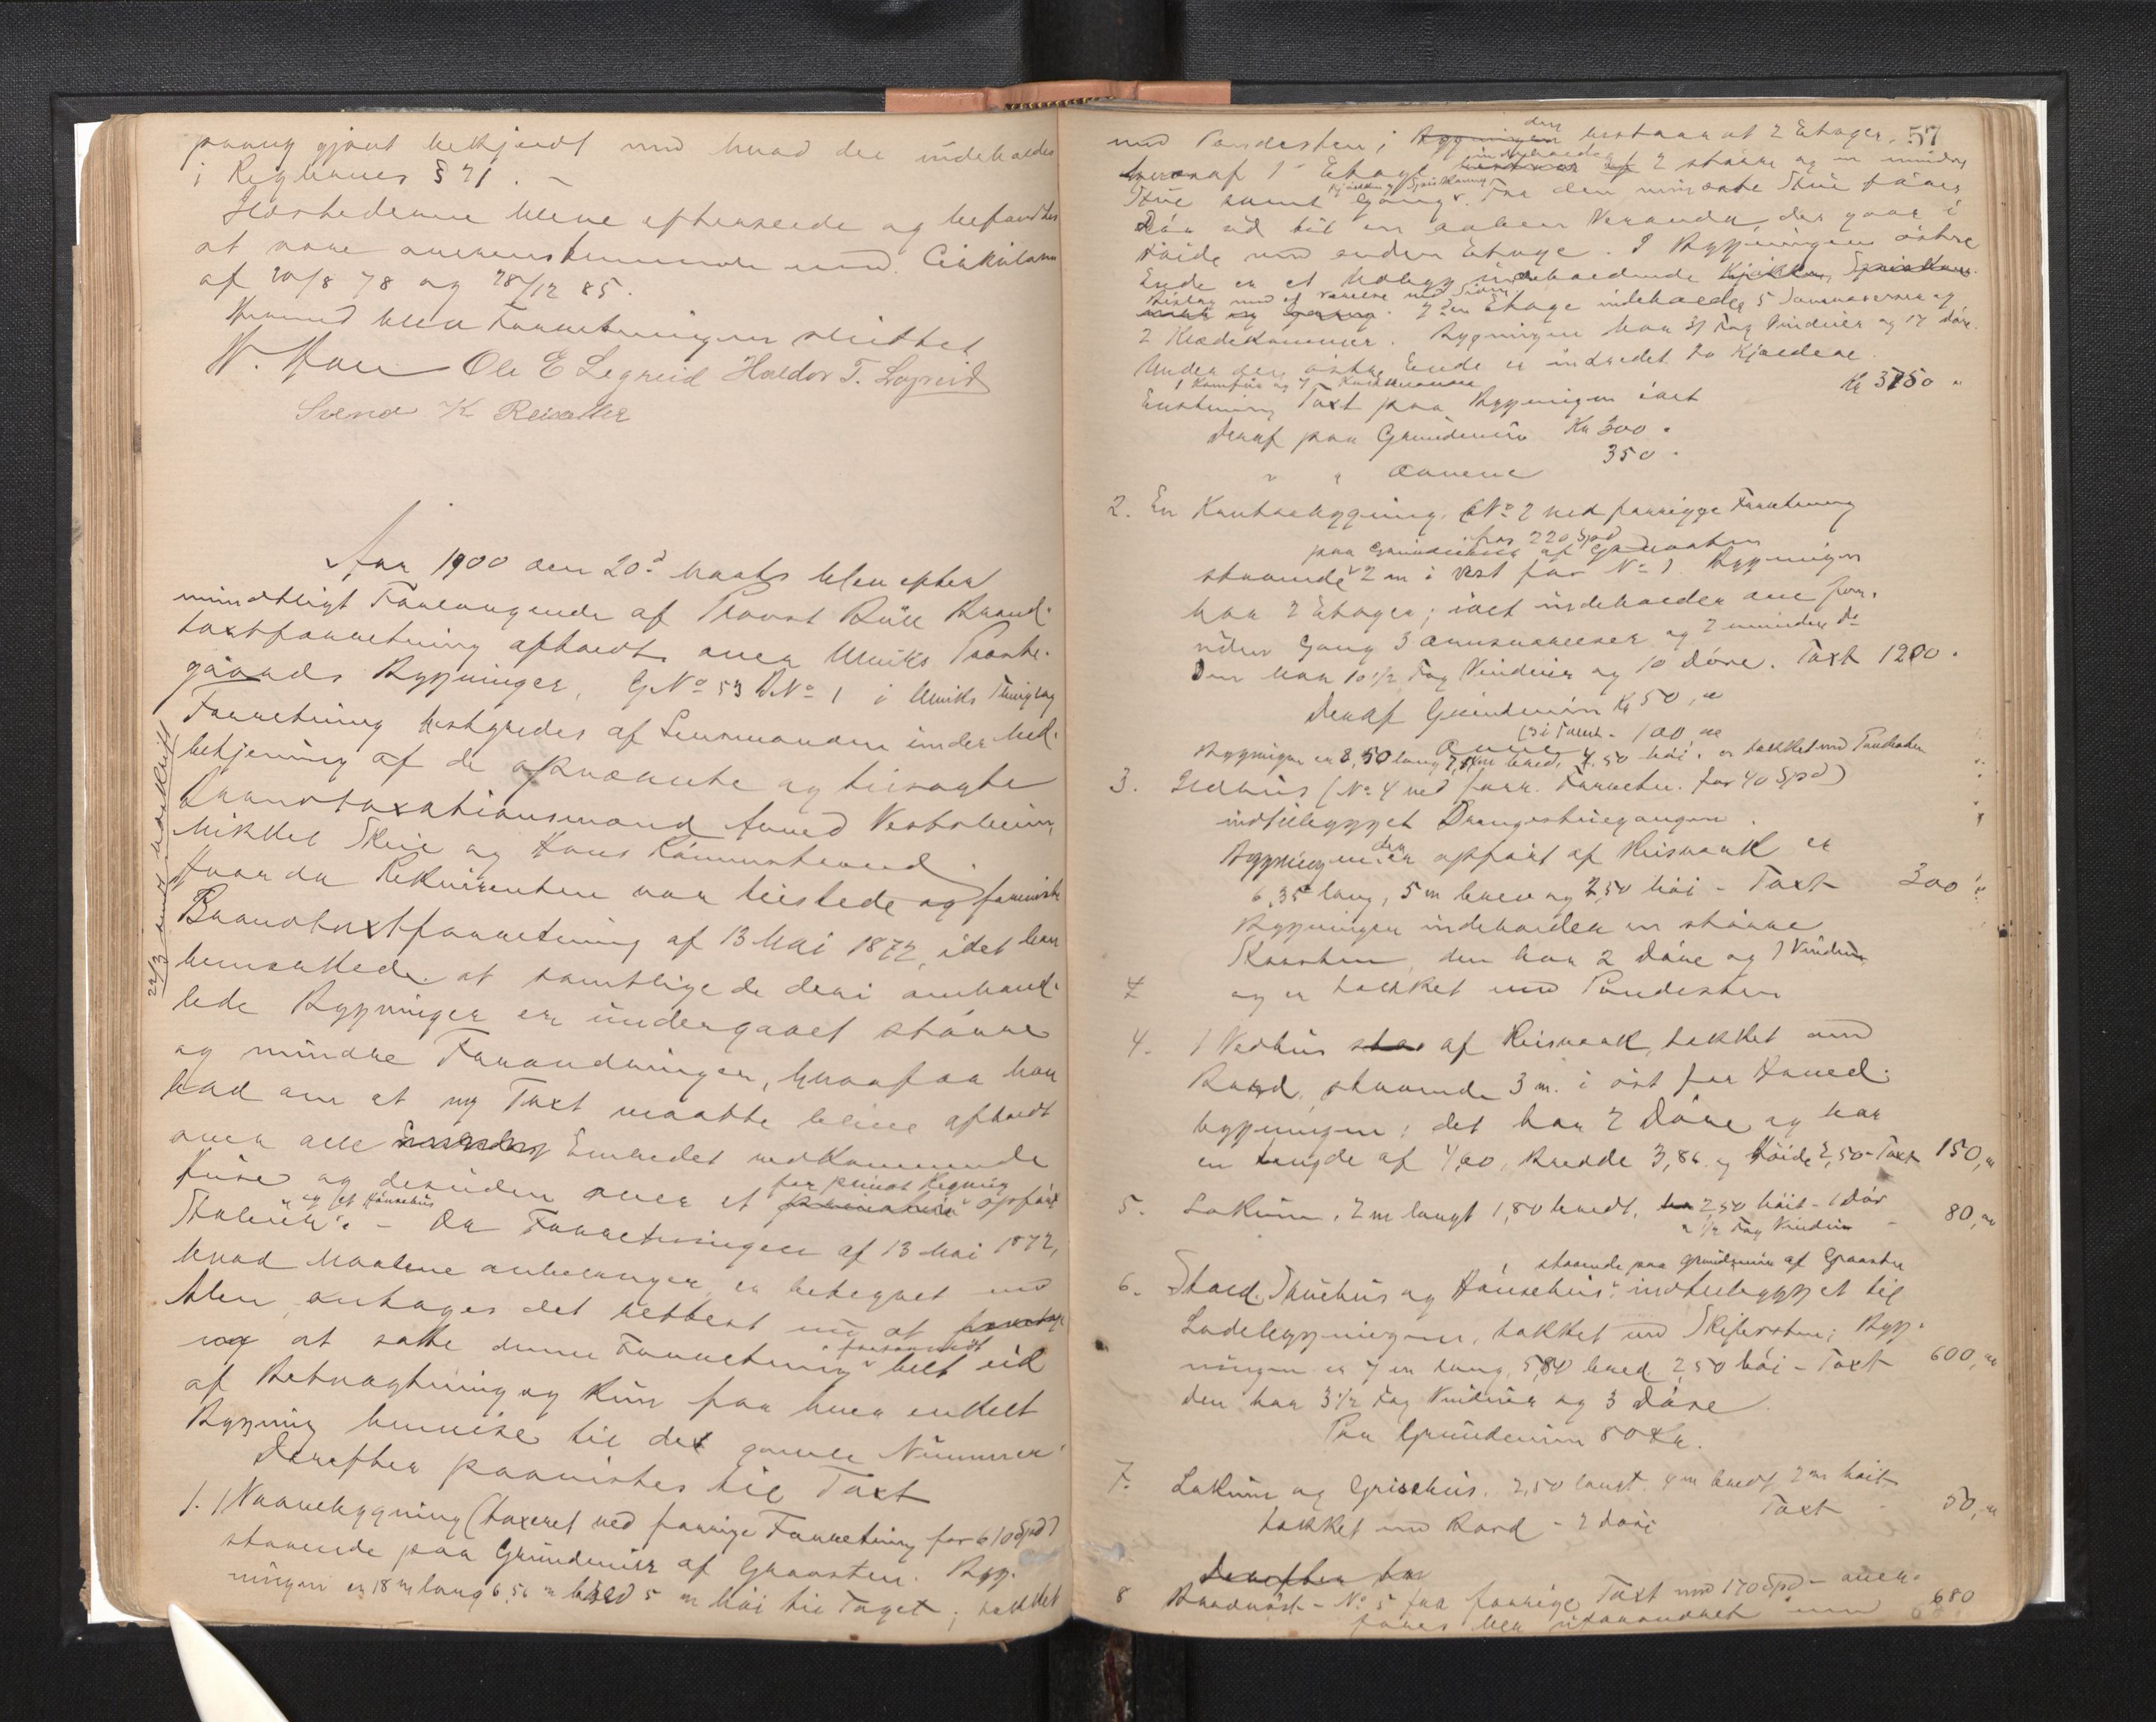 paany gjort bekjendt med hvad der indeholdes
i Reglernes § 21. –
Ildstederne bleve efterseede og befandtes
at være overensstemmende med Cirkulære
af 20/8 78 og 28/12 85.
Hermed blev Forretningen sluttet
Ole E Legreid Haldor T. Legreid
Svend K Reisæter
Aar 1900 den 20d Marts blev efter
mundtligt Forlangende af Provst Brand-
taxtforretning afholdt over Ulviks Præste-
gaards Bygninger, GNo 53 BNo 1 i Ulviks Thinglag
Forretning bestyredes af Lensmanden under Med-
betjening af de opnævnte og tilsagte
Brandtaxationsmænd Vestrheim,
Mikkel Skeie og Hans
Hvorda Rekvirenten var tilstede og foreviste
Brandtaxtforretning af 13 Mai 1872, idet han
bemærkede at samtlige de deri omhand-
lede Bygninger er undergaaet større
og mindre Forandringer, hvorfor han
bad om at ny Taxt maatte blive afholdt
over alle Embedet vedkommende
for privat Regning
Huse og desuden over et opført
" og et Hønsehus
Stabur". – Da Forretningen af 13 Mai 1872,
hvad Maalene anbelanger, er betegnet med
Alen, antages det rettest nu at
at sætte denne Forretning helt ud
af Betragtning og kun for hver enkelt
Bygning henvise til det gamle Nummer.
Derefter paavistes til Taxt
1. 1 Vaanebygning (taxeret ved forrige Forretning for 610 Spd)
staaende paa Grundmur af Graasten. Byg-
ningen er 18 m lang 6,56 m bred 5 m høi til Taget; tækket
22/3 meddelt udskrift
57
med Pandesten; den bestaar af 2 Etager,
hvoraf 1ste Etage indeholder 2 større og en mindre
Kjøkken, Spiskammer
Stue samt Gang. Fra den største Stue fører
Dør ud til en aaben Veranda, der gaar i
Høide med anden Etage. I Bygningens østre
Ende er et Udbygg indeholdende Kjøkken, Spiskam-
2den Etage indeholder 5 Soveværelser og
2 Klædekammer. Bygningen har 31 Fag Vinduer og 17 Døre.
Under den østre Ende er indredet to Kjældere.
1 Komfur og 7 Kakkelovne
Erstatning Taxt paa Bygningen ialt Kr 3750 "
Deraf paa Grundmur Kr 300 "
" " Ovnene 350 "
2. En Kontorbygning, (No 2 ved forrige Forretning
for 220 Spd
paa Grundmur af Graasten
staaende 2 m i vest for No 1. Bygningen
har 2 Etager; ialt indeholder den for-
uden Gang 3 Værelser og 2 mindre do
Den har 10 1/2 Fag Vinduer og 10 Døre. Taxt 1200.
Deraf Grundmur Kr 50, "
Ovne 100, "
Bygningen er 8,50 lang bred, 4,50 høi. er tækket med Pandesten
3. Ildhus (No 4 ved forr. Forretn. for 40 Spd)
indtilbygget
Bygningen, der er opført af Reisværk er
6,35 lang, 5 m bred og 2,50 høi – Taxt 300 "
Bygningen indeholder en større
Skorsten, den har 2 Døre og 1 Vindue
og er tækket med Pandesten
4. 1 Vedhus af Reisværk, tækket med
Bord, staaende 3 m. i øst for Hoved-
bygningen; det har 2 Døre og har
en Længde af 4,00, Bredde 3,86 og Høide 2,50 – Taxt 150, "
5. Lokum, 2 m langt 1,80 bredt, 2,50 høit – 1 Dør
" 1/2 Fag Vindue – 80, "
staaende paa Grundmur af Graasten
6. Stald, Skuehus og Hønsehus indtilbygget til
Ladebygningen, tækket med Skifersten; Byg-
ningen er 7 m lang, 5,80 bred 2,50 høi – Taxt 600, "
den har 3 1/2 Fag Vinduer og 3 Døre
Paa Grundmuren 80 Kr.
7. Lokum og Grisehus. 2,50 langt 4 m bredt 2 m høit
tækket med Bord – 2 Døre Taxt 50, "
Derefter
8 No 5 fra forrige Taxt med 170 Spd – 680
uforandret